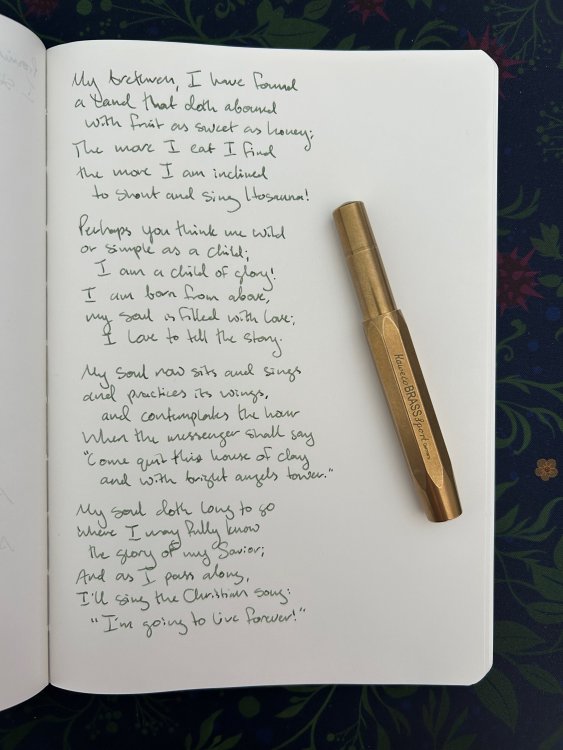 My brethren, I have found
a land that doth abound
with fruit as sweet as honey;
The more I eat I find
the more I am inclined
to shout and sing Hosanna!
Perhaps you think me wild
or simple as a child;
I am a child of glory!
I am born from above,
my soul is filled with love;
I love to tell the story.
My soul now sits and sings
and practices its wings,
and contemplates the hour
When the messenger shall say
"Come quit this house of clay
and with bright angels tower."
My soul doth long to go
where I may fully know
the glory of my Savior;
And as I pass along,
I'll sing the Christian song:
"I'm going to live forever!"
Kaweco BRASS Sport Germany